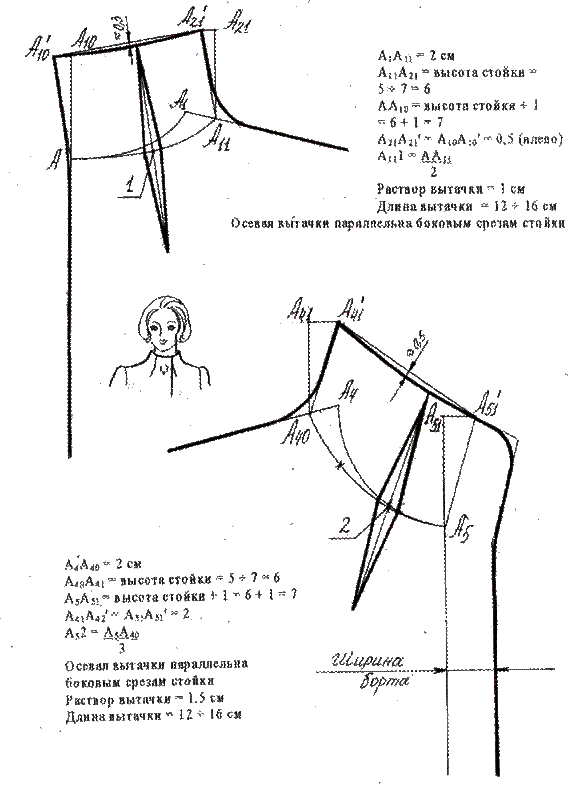 A₁₀' A₁₀ ≈0,5 A₂₁' A₂₁
A₁A₁₁ = 2 см
A₁₁A₂₁ = высота стойки =
5 ÷ 7 = 6
AA₁₀ = высота стойки + 1
= 6 + 1 = 7
A₂₁A₂₁' = A₁₀A₁₀' = 0,5 (влево)
A₁₁1 = AA₁₁
2
Раствор вытачки = 1 см
Длина вытачки = 12 ÷ 16 см
Осевая вытачки параллельна боковым срезам стойки
A₁
A A₁₁
1
A₄₁ A₄₁'
≈0,5
A₄ A₅₁ A₅₁'
A₄₀
2 A₅
A₄A₄₀ = 2 см
A₄₀A₄₁ = высота стойки = 5 ÷ 7 = 6
A₅A₅₁ = высота стойки + 1 = 6 + 1 = 7
A₄₁A₄₂' = A₅₁A₅₁' = 2
A₅2 = A₅A₄₀
3
Осевая вытачки параллельна
боковым срезам стойки
Раствор вытачки = 1.5 см
Длина вытачки = 12 ÷ 16 см
Ширина
борта